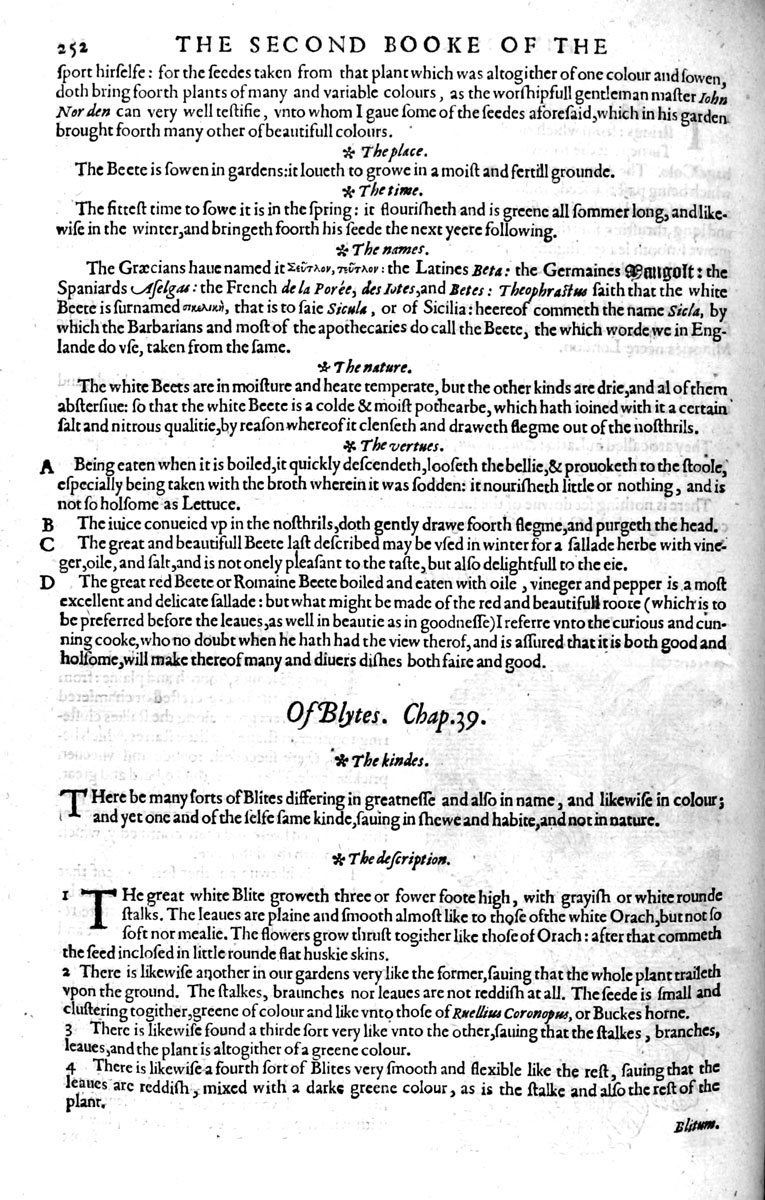 252 THE SECOND BOOKE OF THE
ſport hirſelfe: for the ſeedes taken from that plant which was altogither of one colour and ſowen,
doth bring foorth plants of many and variable colours, as the worſhipfull gentleman maſter Iohn
Norden can very well teſtifie, vnto whom I gaue ſome of the ſeedes aforeſaid, which in his garden
brought foorth many other of beautifull colours.
✻ The place.
The Beete is ſowen in gardens: it loueth to growe in a moiſt and fertill grounde.
✻ The time.
The fitteſt time to ſowe it is in the ſpring: it flouriſheth and is greene all ſommer long, and like-
wiſe in the winter, and bringeth foorth his ſeede the next yeere following.
✻ The names.
The Græcians haue named it Σεῦτλον, τεῦτλον: the Latines Beta: the Germaines Mangolt: the
Spaniards Aſelgas: the French de la Porée, des Iotes, and Betes: Theophraſtus ſaith that the white
Beete is ſurnamed σικελικὴ, that is to ſaie Sicula, or of Sicilia: heereof commeth the name Sicla, by
which the Barbarians and moſt of the apothecaries do call the Beete, the which worde we in Eng-
lande do vſe, taken from the ſame.
✻ The nature.
The white Beets are in moiſture and heate temperate, but the other kinds are drie, and al of them
abſterſiue: ſo that the white Beete is a colde & moiſt pothearbe, which hath ioined with it a certain
ſalt and nitrous qualitie, by reaſon whereof it clenſeth and draweth flegme out of the noſthrils.
✻ The vertues.
A Being eaten when it is boiled, it quickly deſcendeth, looſeth the bellie, & prouoketh to the ſtoole,
eſpecially being taken with the broth wherein it was ſodden: it nouriſheth little or nothing, and is
not ſo holſome as Lettuce.
B The iuice conueied vp in the noſthrils, doth gently drawe foorth flegme, and purgeth the head.
C The great and beautifull Beete laſt deſcribed may be vſed in winter for a ſallade herbe with vine-
ger, oile, and ſalt, and is not onely pleaſant to the taſte, but alſo delightfull to the eie.
D The great red Beete or Romaine Beete boiled and eaten with oile, vineger and pepper is a moſt
excellent and delicate ſallade: but what might be made of the red and beautifull roote (which is to
be preferred before the leaues, as well in beautie as in goodneſſe) I referre vnto the curious and cun-
ning cooke, who no doubt when he hath had the view therof, and is aſſured that it is both good and
holſome, will make thereof many and diuers diſhes both faire and good.
Of Blytes. Chap. 39.
✻ The kindes.
THere be many ſorts of Blites differing in greatneſſe and alſo in name, and likewiſe in colour;
and yet one and of the ſelfe ſame kinde, ſauing in ſhewe and habite, and not in nature.
✻ The deſcription.
1 THe great white Blite groweth three or fower foote high, with grayiſh or white rounde
ſtalks. The leaues are plaine and ſmooth almoſt like to thoſe of the white Orach, but not ſo
ſoft nor mealie. The flowers grow thruſt togither like thoſe of Orach: after that commeth
the ſeed incloſed in little rounde flat huskie skins.
2 There is likewiſe another in our gardens very like the former, ſauing that the whole plant traileth
vpon the ground. The ſtalkes, braunches nor leaues are not reddiſh at all. The ſeede is ſmall and
cluſtering togither, greene of colour and like vnto thoſe of Ruellius Coronopus, or Buckes horne.
3 There is likewiſe found a thirde ſort very like vnto the other, ſauing that the ſtalkes, branches,
leaues, and the plant is altogither of a greene colour.
4 There is likewiſe a fourth ſort of Blites very ſmooth and flexible like the reſt, ſauing that the
leaues are reddiſh, mixed with a darke greene colour, as is the ſtalke and alſo the reſt of the
plant.
Blitum.